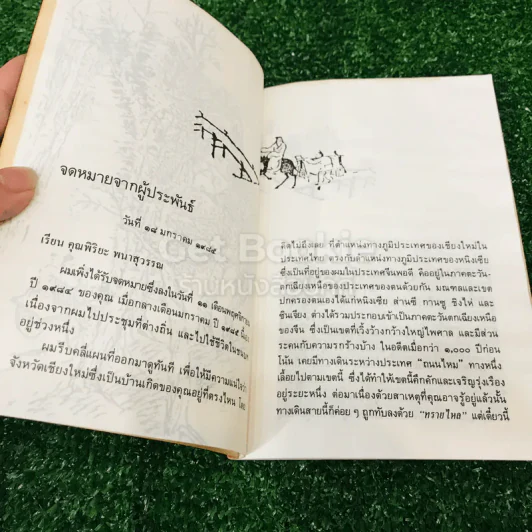 จดหมายจากผู้ประพันธ์
วันที่ ๑๘ มกราคม ๑๙๘๕
เรียน คุณพิริยะ พนาสุวรรณ
ผมเพิ่งได้รับจดหมายซึ่งลงในวันที่ ๑๑ เดือนพฤศจิกายน
ปี ๑๙๘๔ ของคุณ เมื่อกลางเดือนมกราคม ปี ๑๙๘๕ นี้
เนื่องจากผมไปประชุมที่ต่างถิ่น และไปใช้ชีวิตในชนบท
อยู่ช่วงหนึ่ง
ผมรีบคลี่แผนที่ออกมาดูทันที เพื่อให้มีความแน่ใจว่า
จังหวัดเชียงใหม่ซึ่งเป็นบ้านเกิดของคุณอยู่ที่ตรงไหน โดย
คิดไม่ถึงเลย ที่ตำแหน่งทางภูมิประเทศของเชียงใหม่ใน
ประเทศไทย ตรงกับตำแหน่งทางภูมิประเทศของหนิงเซีย
ซึ่งเป็นที่อยู่ของผมในประเทศจีนพอดี คืออยู่ในภาคตะวัน-
ตกเฉียงเหนือของประเทศของตนด้วยกัน มณฑลและเขต
ปกครองตนเองได้แก่หนิงเซีย ส่านซี กานซู ชิงไห่ และ
ซินเจียง ต่างได้รวมประกอบเข้าเป็นภาคตะวันตกเฉียงเหนือ
ของจีน ซึ่งเป็นเขตที่เวิ้งว้างกว้างใหญ่ไพศาล และมีส่วน
ระคนกับความรกร้างบ้าง ในอดีตเมื่อกว่า ๑,๐๐๐ ปีก่อน
โน้น เคยมีทางเดินระหว่างประเทศ "ถนนไหม" ทางหนึ่ง
เลื้อยไปตามเขตนี้ ซึ่งได้ทำให้เขตนี้คึกคักและเจริญรุ่งเรือง
อยู่ระยะหนึ่ง ต่อมาเนื่องด้วยสาเหตุที่คุณอาจรู้อยู่แล้วนั้น
ทางเดินสายนี้ก็ค่อยๆ ถูกทับลงด้วย "ทรายไหล" แต่เดี๋ยวนี้